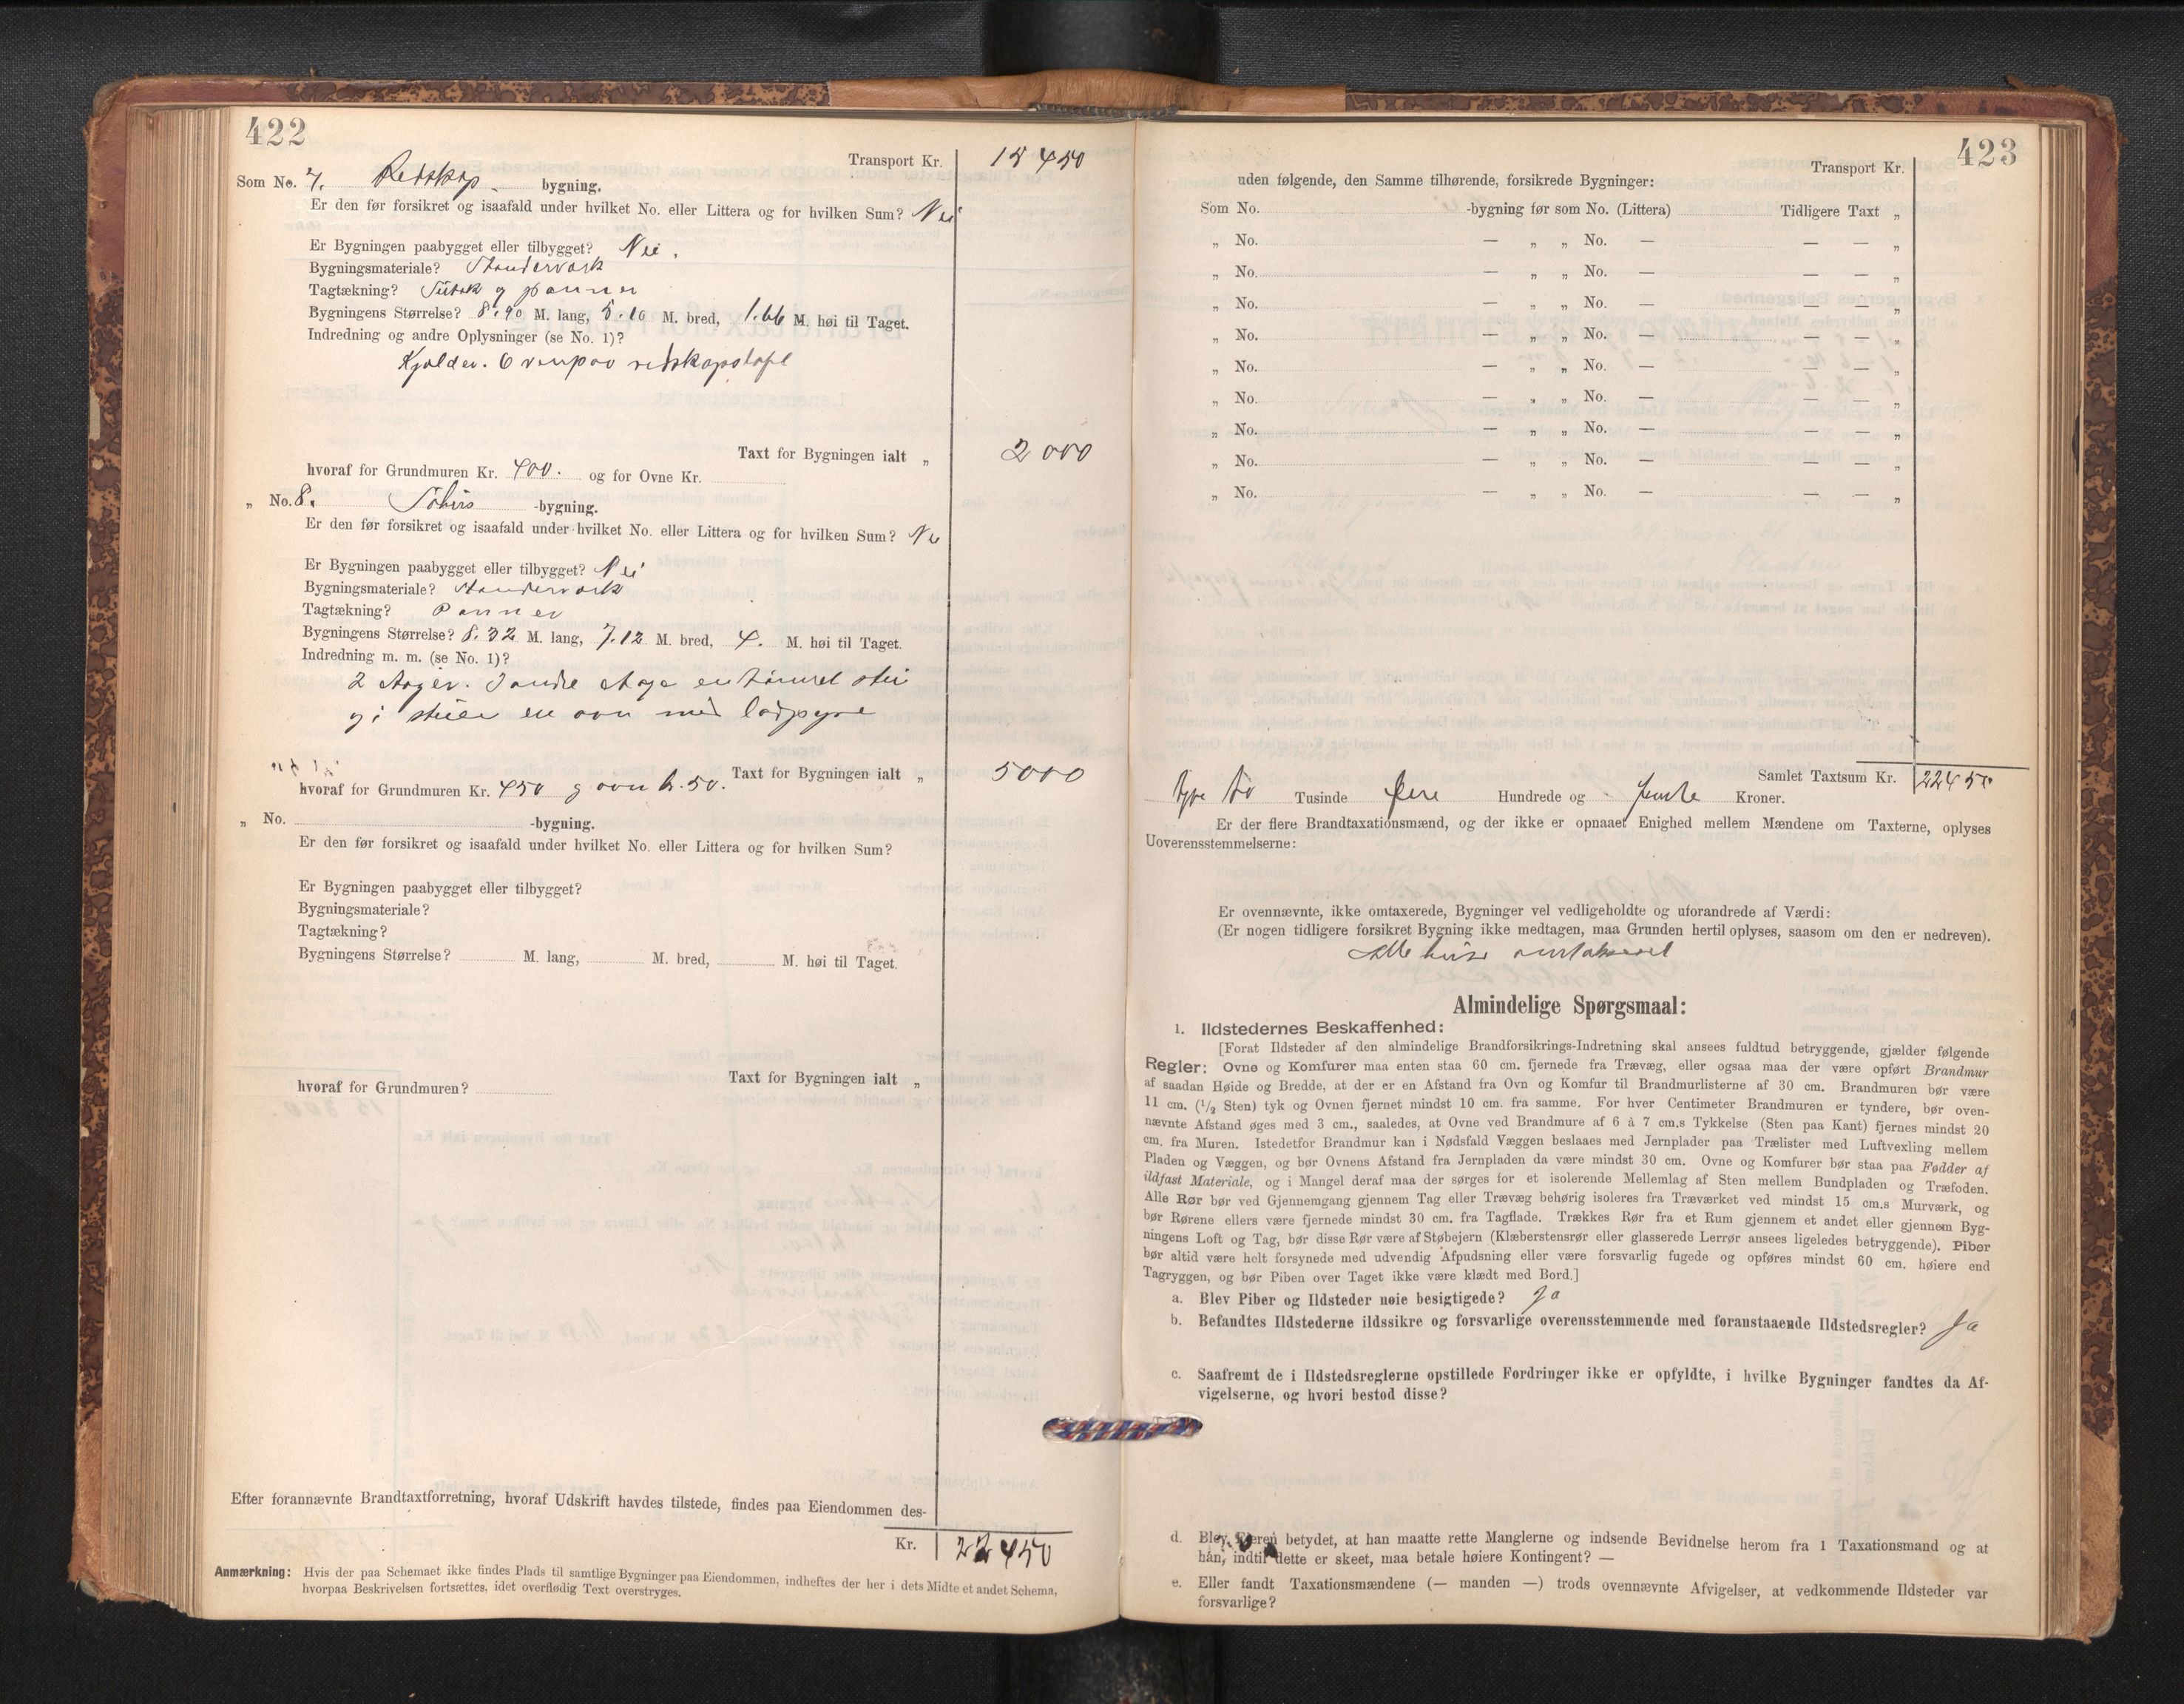 422
Transport Kr. 15 450
Som No. 7. Redskap- bygning.
Er den før forsikret og isaafald under hvilket No. eller Littera og for hvilken Sum? Nei
Er Bygningen paabygget eller tilbygget? Nei.
Bygningsmateriale? Standerværk
Tagtækning? og panner
Bygningens Størrelse? 8.90 M. lang, 5.10 M. bred, 1.66 M. høi til Taget.
Indredning og andre Oplysninger (se No. 1)?
Kjelder. Ovenpaa redskapsloft
Taxt for Bygningen ialt „ 2 000
hvoraf for Grundmuren Kr. 400. og for Ovne Kr.
„ No. 8. -bygning.
Er den før forsikret og isaafald under hvilket No. eller Littera og for hvilken Sum? Nei
Er Bygningen paabygget eller tilbygget? Nei
Bygningsmateriale? Standerværk
Tagtækning? Panner
Bygningens Størrelse? 8.32 M. lang, 7.12 M. bred, 4. M. høi til Taget.
Indredning m. m. (se No. 1)?
2 etager. I andre etage en
og i en ovn med
Taxt for Bygningen ialt „ 5000
hvoraf for Grundmuren Kr. 450 og ovn kr. 50.
„ No. -bygning.
Er den før forsikret og isaafald under hvilket No. eller Littera og for hvilken Sum?
Er Bygningen paabygget eller tilbygget?
Bygningsmateriale?
Tagtækning?
Bygningens Størrelse? M. lang, M. bred, M. høi til Taget.
Taxt for Bygningen ialt „
hvoraf for Grundmuren?
Efter forannævnte Brandtaxtforretning, hvoraf Udskrift havdes tilstede, findes paa Eiendommen des-
Kr. 22 450
Anmærkning: Hvis der paa Schemaet ikke findes Plads til samtlige Bygninger paa Eiendommen, indheftes der her i dets Midte et andet Schema,
hvorpaa Beskrivelsen fortsættes, idet overflødig Text overstryges.
423
Transport Kr.
uden følgende, den Samme tilhørende, forsikrede Bygninger:
Som No. -bygning før som No. (Littera) Tidligere Taxt „
„ No. — „ „ No. — — — „
„ No. — „ „ No. — — — „
„ No. — „ „ No. — — — „
„ No. — „ „ No. — — — „
„ No. — „ „ No. — — — „
„ No. — „ „ No. — — — „
„ No. — „ „ No. — — — „
„ No. — „ „ No. — — — „
„ No. — „ „ No. — — — „
Samlet Taxtsum Kr. 22450
tyve to Tusinde fire Hundrede og femti Kroner.
Er der flere Brandtaxationsmænd, og der ikke er opnaaet Enighed mellem Mændene om Taxterne, oplyses
Uoverensstemmelserne:
Er ovennævnte, ikke omtaxerede, Bygninger vel vedligeholdte og uforandrede af Værdi:
(Er nogen tidligere forsikret Bygning ikke medtagen, maa Grunden hertil oplyses, saasom om den er nedreven).
Alle huse omtakseret
Almindelige Spørgsmaal:
1. Ildstedernes Beskaffenhed:
[Forat Ildsteder af den almindelige Brandforsikrings-Indretning skal ansees fuldtud betryggende, gjælder følgende
Regler: Ovne og Komfurer maa enten staa 60 cm. fjernede fra Trævæg, eller ogsaa maa der være opført Brandmur
af saadan Høide og Bredde, at der er en Afstand fra Ovn og Komfur til Brandmurlisterne af 30 cm. Brandmuren bør være
11 cm. (1/2 Sten) tyk og Ovnen fjernet mindst 10 cm. fra samme. For hver Centimeter Brandmuren er tyndere, bør oven-
nævnte Afstand øges med 3 cm., saaledes, at Ovne ved Brandmure af 6 à 7 cm.s Tykkelse (Sten paa Kant) fjernes mindst 20
cm. fra Muren. Istedetfor Brandmur kan i Nødsfald Væggen beslaaes med Jernplader paa Trælister med Luftvexling mellem
Pladen og Væggen, og bør Ovnens Afstand fra Jernpladen da være mindst 30 cm. Ovne og Komfurer bør staa paa Fødder af
ildfast Materiale, og i Mangel deraf maa der sørges for et isolerende Mellemlag af Sten mellem Bundpladen og Træfoden.
Alle Rør bør ved Gjennemgang gjennem Tag eller Trævæg behørig isoleres fra Træværket ved mindst 15 cm.s Murværk, og
bør Rørene ellers være fjernede mindst 30 cm. fra Tagflade. Trækkes Rør fra et Rum gjennem et andet eller gjennem Byg-
ningens Loft og Tag, bør disse Rør være af Støbejern (Klæberstensrør eller glasserede Lerrør ansees ligeledes betryggende). Piber
bør altid være helt forsynede med udvendig Afpudsning eller være forsvarlig fugede og opføres mindst 60 cm. høiere end
Tagryggen, og bør Piben over Taget ikke være klædt med Bord.]
a. Blev Piber og Ildsteder nøie besigtigede? Ja
b. Befandtes Ildstederne ildssikre og forsvarlige overensstemmende med foranstaaende Ildstedsregler? Ja
c. Saafremt de i Ildstedsreglerne opstillede Fordringer ikke er opfyldte, i hvilke Bygninger fandtes da Af-
vigelserne, og hvori bestod disse?
d. Blev Eieren betydet, at han maatte rette Manglerne og indsende Bevidnelse herom fra 1 Taxationsmand og at
han, indtil dette er skeet, maa betale høiere Kontingent? —
e. Eller fandt Taxationsmændene (— manden —) trods ovennævnte Afvigelser, at vedkommende Ildsteder var
forsvarlige?